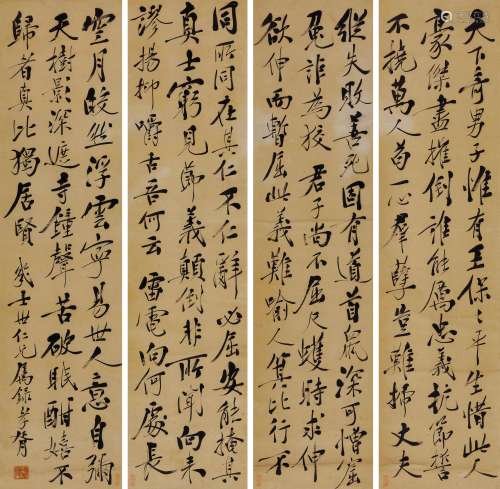 天下奇男子惟有王保〻平生惜此人
豪傑盡摧倒誰能勵忠義抗節誓
不撓萬人苟一心群孽豈難掃丈夫
縱失敗善死固有道首鼠深可憎窟
兔詐為狡君子尚不屈尺蠖時求伸
欲伸而暫屈此義難喻人其比行不
同所同在其仁不仁辭必屈安能掩其
真士窮見節義顛倒非所聞向來
謬揚抑嚼古吾何云雷電向何處長
空月皎然浮雲寧易世人意自彌
天樹影深遮寺鐘聲苦破眠酣嬉不
歸者真比獨居賢 幾士世仁兄屬錄孝胥